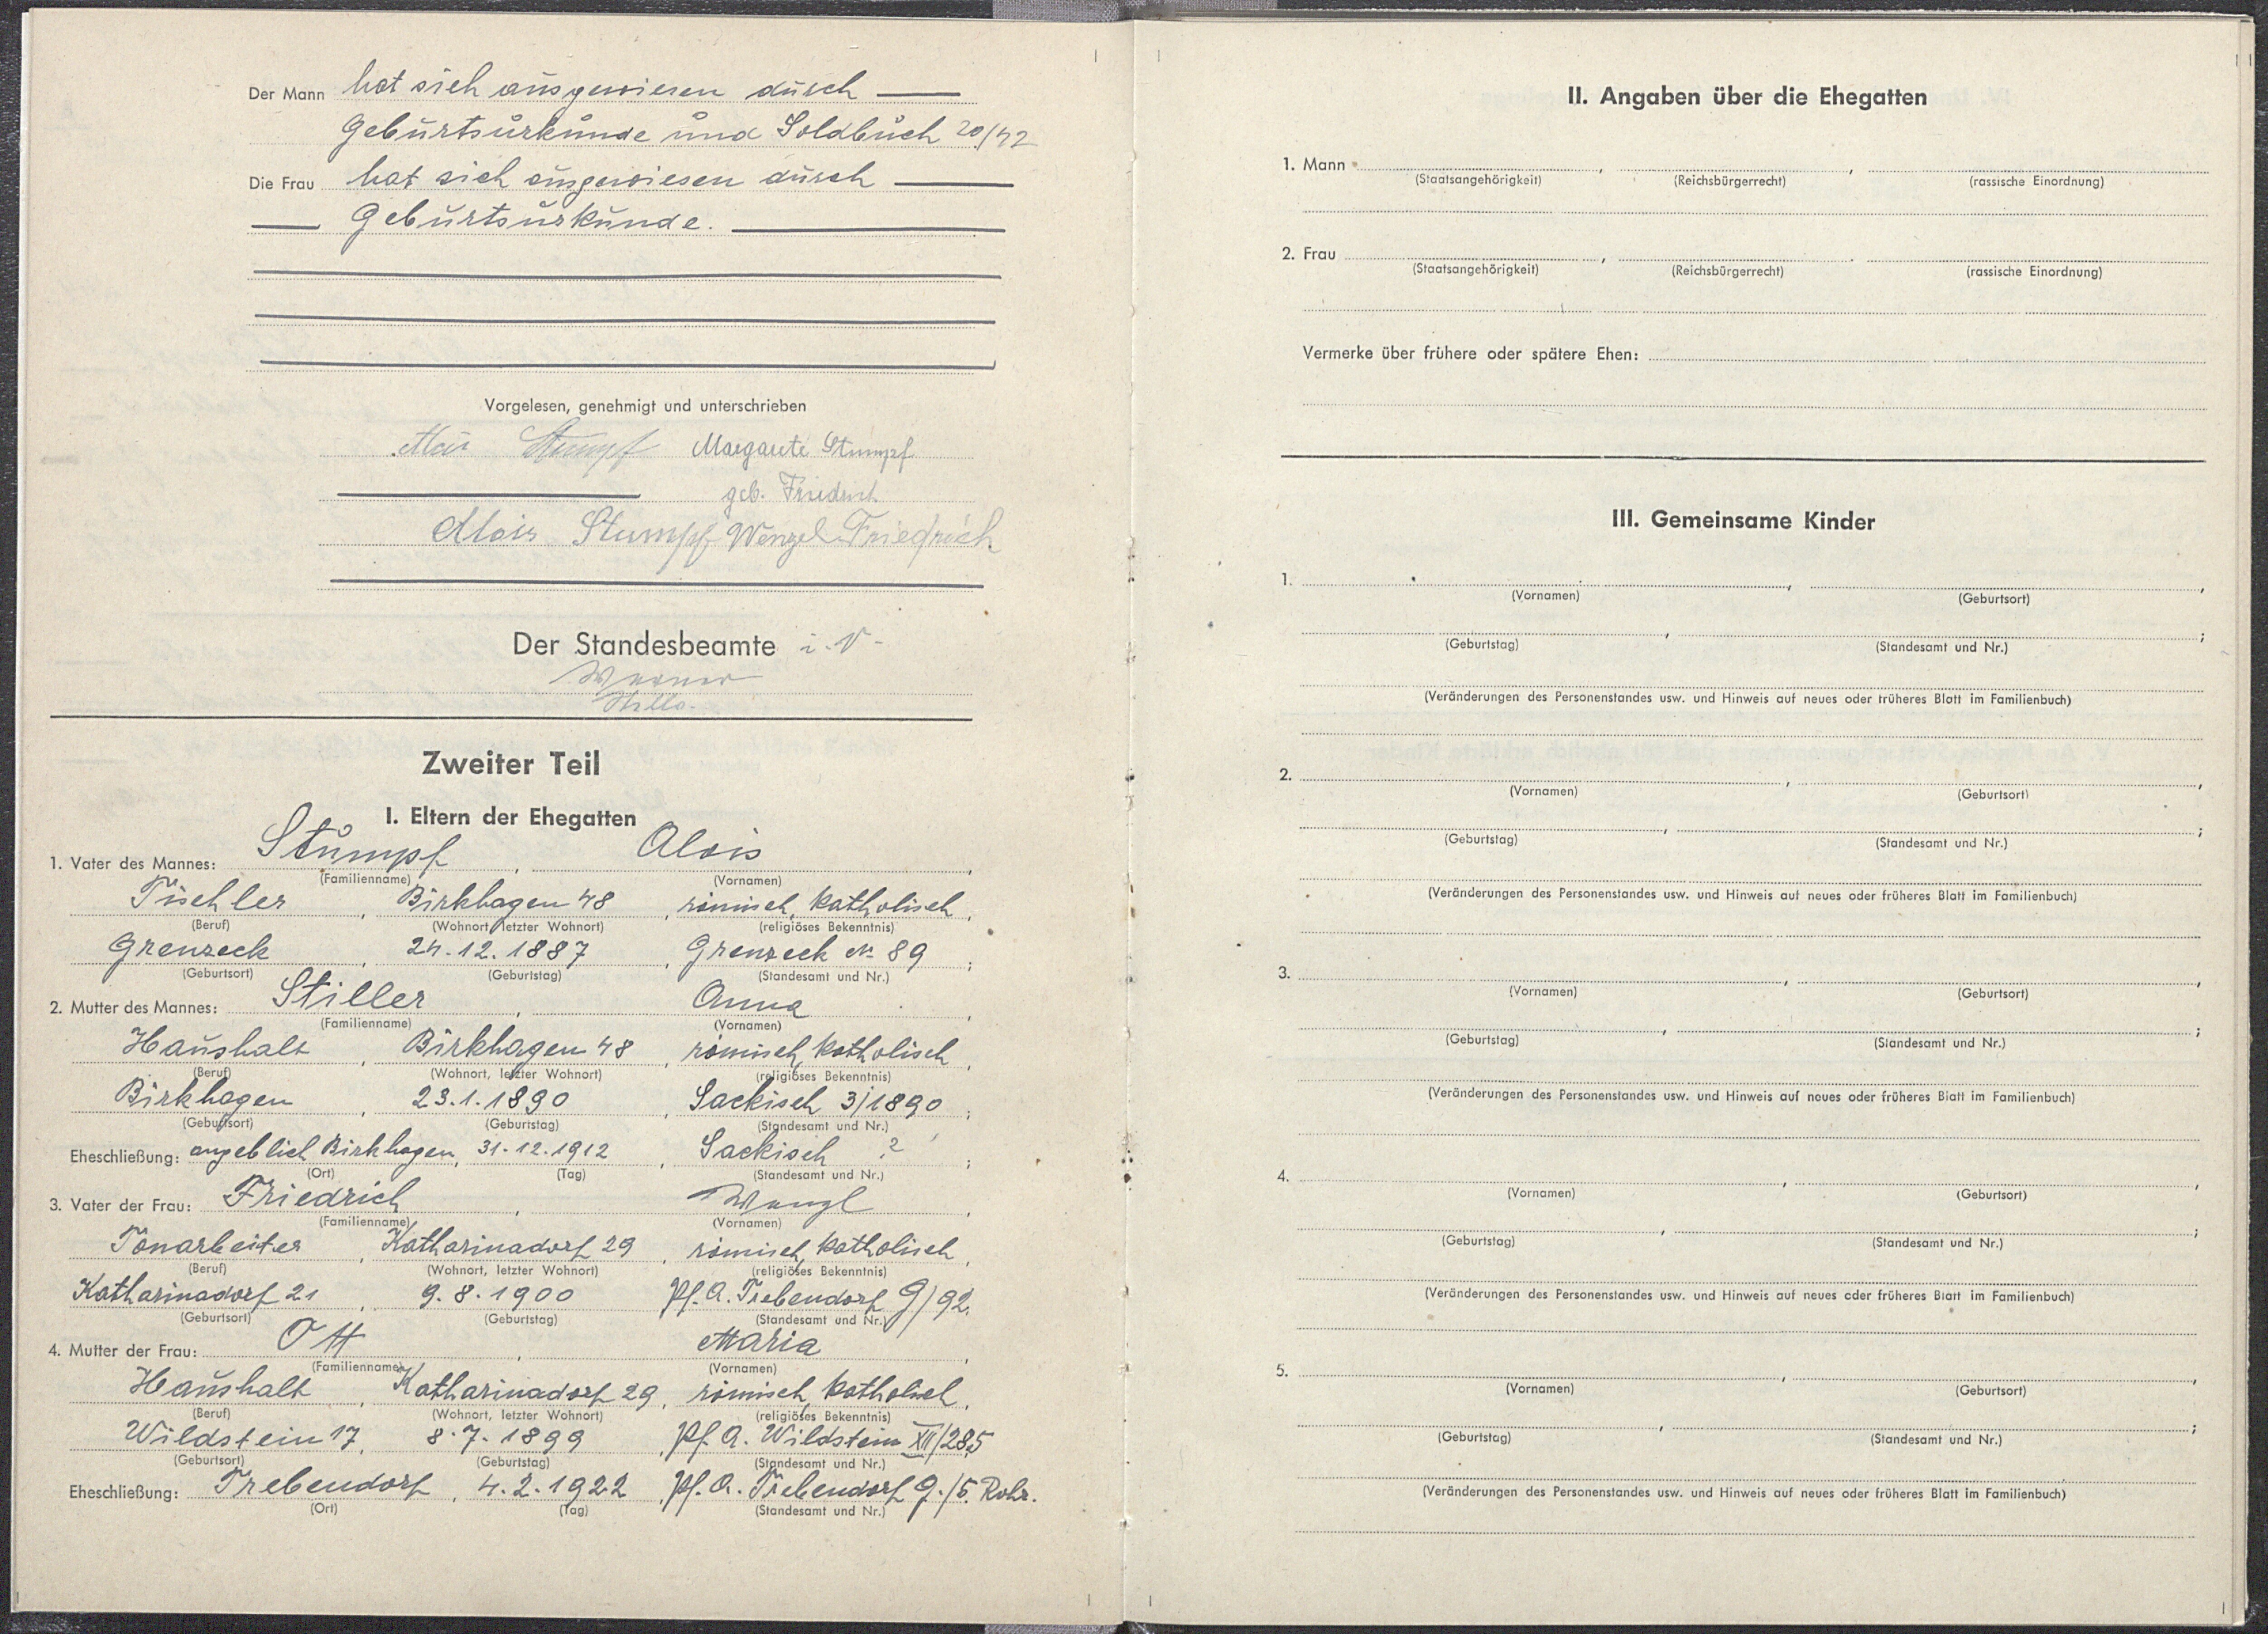 Der Mann hat sich ausgewiesen durch
Geburtsurkunde und Soldbuch 20/42
Die Frau hat sich ausgewiesen durch
Geburtsurkunde.
Vorgelesen, genehmigt und unterschrieben
Stumpf Margarete Stumpf
geb. Friedrich
Alois Stumpf Wenzel Friedrich
Der Standesbeamte i. V.
Zweiter Teil
I. Eltern der Ehegatten
1. Vater des Mannes: Stumpf, Alois,
(Familienname) (Vornamen)
Tischler, Birkhagen 48, römisch katholisch,
(Beruf) (Wohnort, letzter Wohnort) (religiöses Bekenntnis)
Grenzeck, 24.12.1887, Grenzeck № 89;
(Geburtsort) (Geburtstag) (Standesamt und Nr.)
2. Mutter des Mannes: Stiller, Anna,
(Familienname) (Vornamen)
Haushalt, Birkhagen 48, römisch katholisch,
(Beruf) (Wohnort, letzter Wohnort) (religiöses Bekenntnis)
Birkhagen, 23.1.1890, Sackisch 3/1890;
(Geburtsort) (Geburtstag) (Standesamt und Nr.)
Eheschließung: angeblich Birkhagen, 31.12.1912, Sackisch ?;
(Ort) (Tag) (Standesamt und Nr.)
3. Vater der Frau: Friedrich, Wenzl,
(Familienname) (Vornamen)
Tonarbeiter, Katharinadorf 29, römisch katholisch,
(Beruf) (Wohnort, letzter Wohnort) (religiöses Bekenntnis)
Katharinadorf 21, 9.8.1900 Pf. A. Trebendorf G/92.
(Geburtsort) (Geburtstag) (Standesamt und Nr.)
4. Mutter der Frau: Ott, Maria,
(Familienname) (Vornamen)
Haushalt, Katharinadorf 29, römisch katholisch,
(Beruf) (Wohnort, letzter Wohnort) (religiöses Bekenntnis)
Wildstein 17, 8.7.1899, Pf. A. Wildstein XII/285
(Geburtsort) (Geburtstag) (Standesamt und Nr.)
Eheschließung: Trebendorf, 4.2.1922, Pf. A. Trebendorf G./5. Rohr.
(Ort) (Tag) (Standesamt und Nr.)
II. Angaben über die Ehegatten
1. Mann , ,
(Staatsangehörigkeit) (Reichsbürgerrecht) (rassische Einordnung)
2. Frau , .
(Staatsangehörigkeit) (Reichsbürgerrecht) (rassische Einordnung)
Vermerke über frühere oder spätere Ehen:
III. Gemeinsame Kinder
1. , ,
(Vornamen) (Geburtsort)
, ;
(Geburtstag) (Standesamt und Nr.)
(Veränderungen des Personenstandes usw. und Hinweis auf neues oder früheres Blatt im Familienbuch)
2. , ,
(Vornamen) (Geburtsort)
, ;
(Geburtstag) (Standesamt und Nr.)
(Veränderungen des Personenstandes usw. und Hinweis auf neues oder früheres Blatt im Familienbuch)
3. , ,
(Vornamen) (Geburtsort)
, ;
(Geburtstag) (Standesamt und Nr.)
(Veränderungen des Personenstandes usw. und Hinweis auf neues oder früheres Blatt im Familienbuch)
4. , ,
(Vornamen) (Geburtsort)
, ;
(Geburtstag) (Standesamt und Nr.)
(Veränderungen des Personenstandes usw. und Hinweis auf neues oder früheres Blatt im Familienbuch)
5. , ,
(Vornamen) (Geburtsort)
, ;
(Geburtstag) (Standesamt und Nr.)
(Veränderungen des Personenstandes usw. und Hinweis auf neues oder früheres Blatt im Familienbuch)